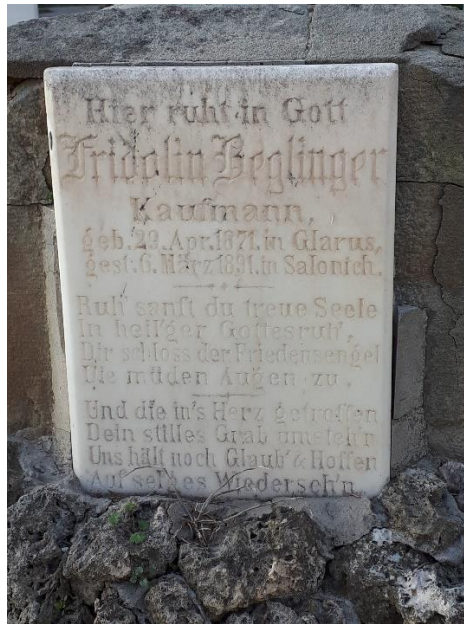 Hier ruht in Gott
Fridolin Beglinger
Kaufmann,
geb. 29. Apr. 1871. in Glarus,
gest. 6. März 1891. in Salonich.
Ruh' sanft du treue Seele
In heil'ger Gottesruh',
Dir schloss der Friedensengel
Die müden Augen zu.
Und die in's Herz getroffen
Dein stilles Grab umsteh'n
Uns hält noch Glaub' & Hoffen
Auf sel'ges Wiederseh'n